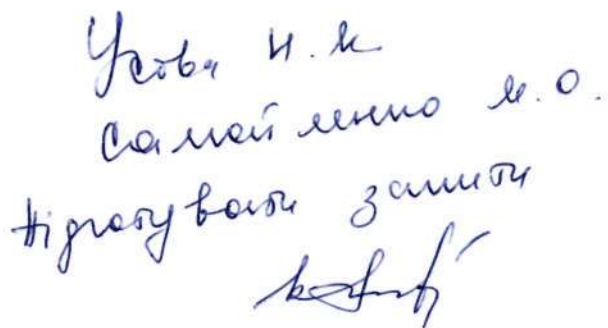 Усова Н. М
Самойленко М. О.
Підготувати запити